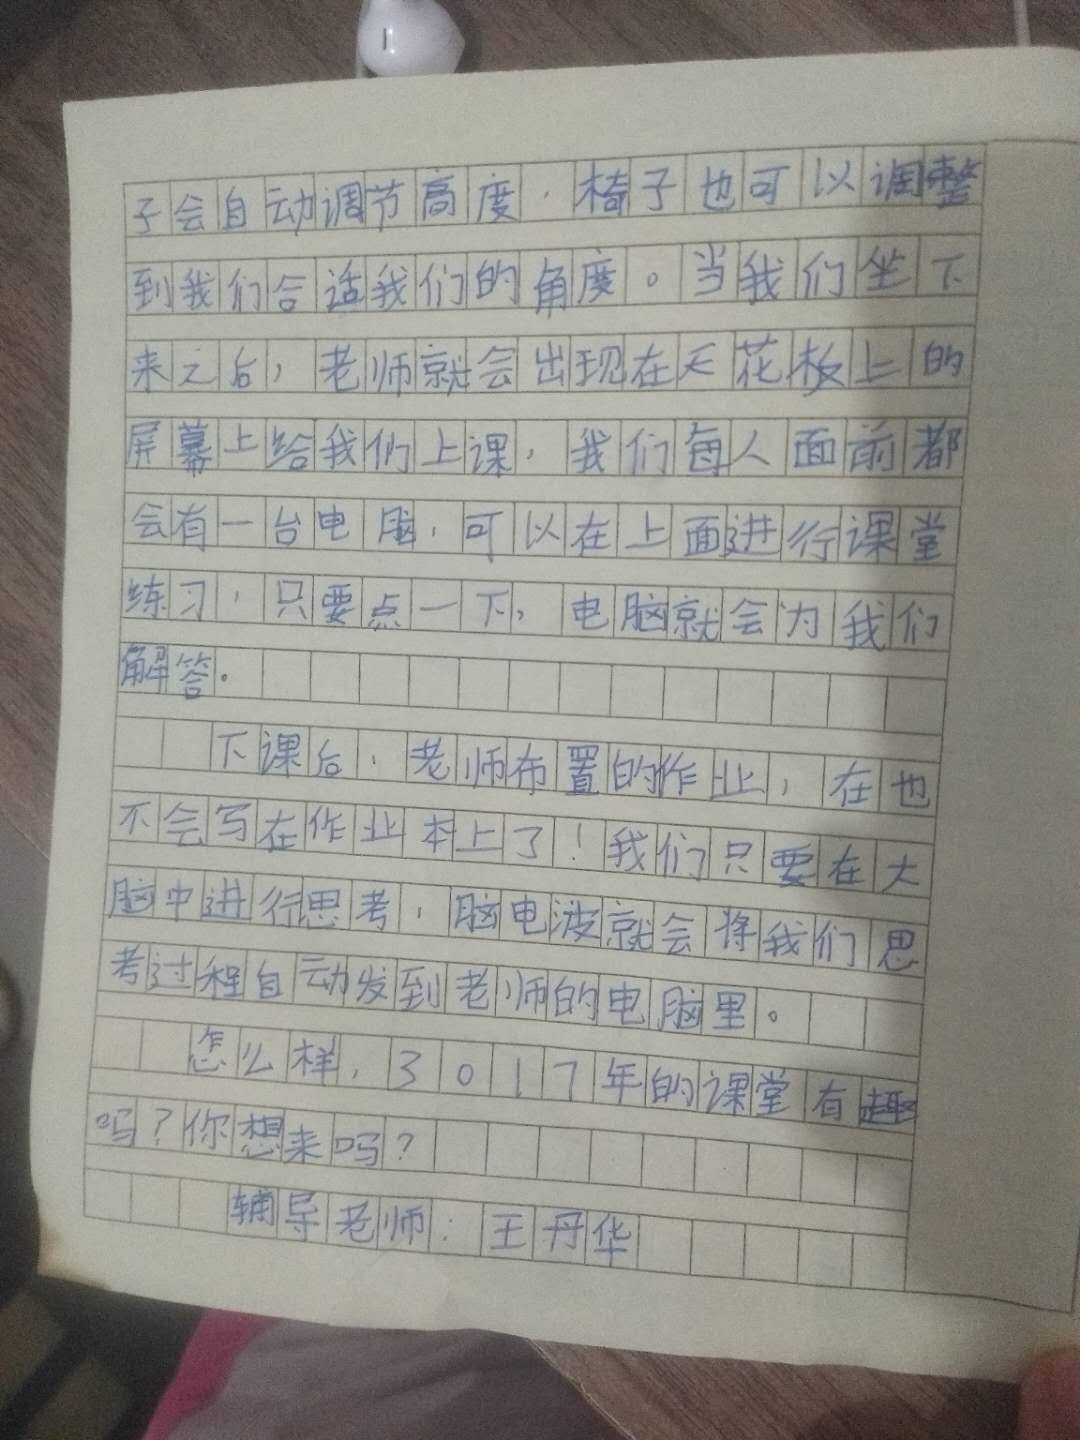 子会自动调节高度，椅子也可以调整
到我们合适我们的角度。当我们坐下
来之后，老师就会出现在天花板上的
屏幕上给我们上课，我们每人面前都
会有一台电脑，可以在上面进行课堂
练习，只要点一下，电脑就会为我们
解答。
下课后，老师布置的作业，在也
不会写在作业本上了！我们只要在大
脑中进行思考，脑电波就会将我们思
考过程自动发到老师的电脑里。
怎么样，3017年的课堂有趣
吗？你想来吗？
辅导老师：王丹华